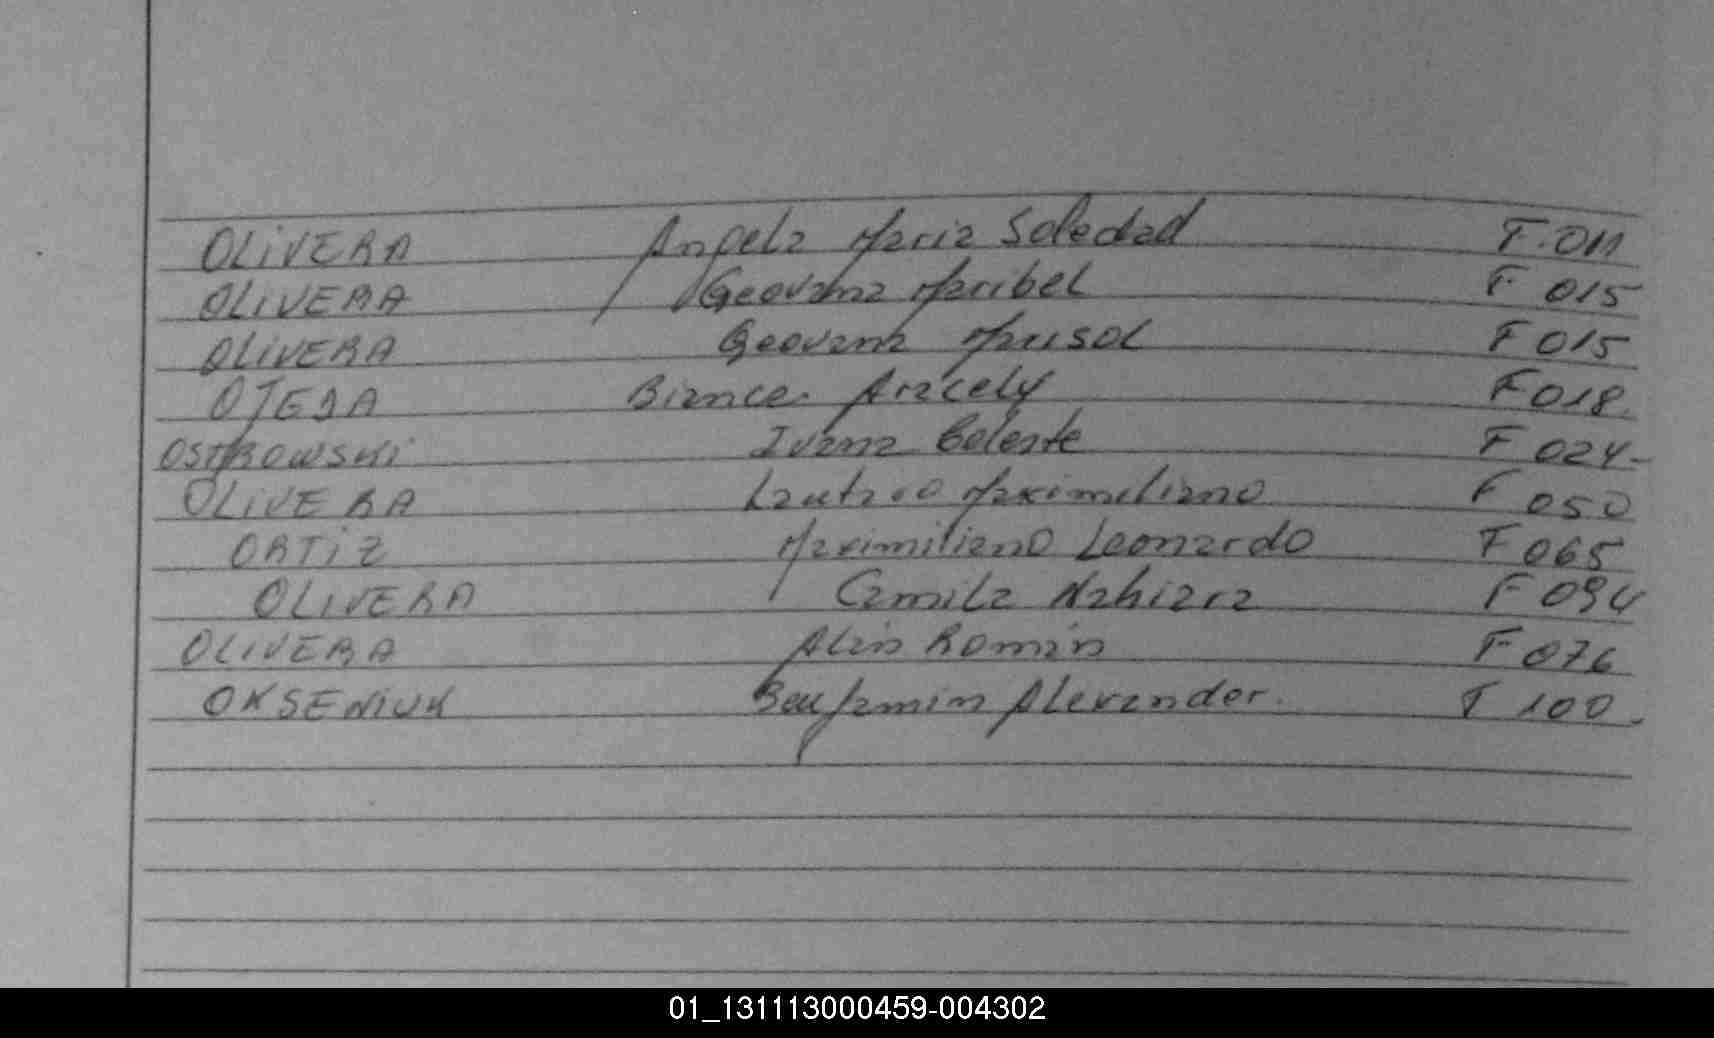 OLIVERA Angela Maria Soledad F.011
OLIVERA Geovana Maribel F 015
OLIVERA Geovana Marisol F 015
OJEDA Bianca Aracely F 018
OSTROWSKI Ivana Celeste F 024
OLIVERA Lautaro Maximiliano F 050
ORTIZ Maximiliano Leonardo F 065
OLIVERA Camila Nahiara F 094
OLIVERA Alan Roman F 076
OKSENIUK Benjamin Alexander. F 100
01_131113000459-004302